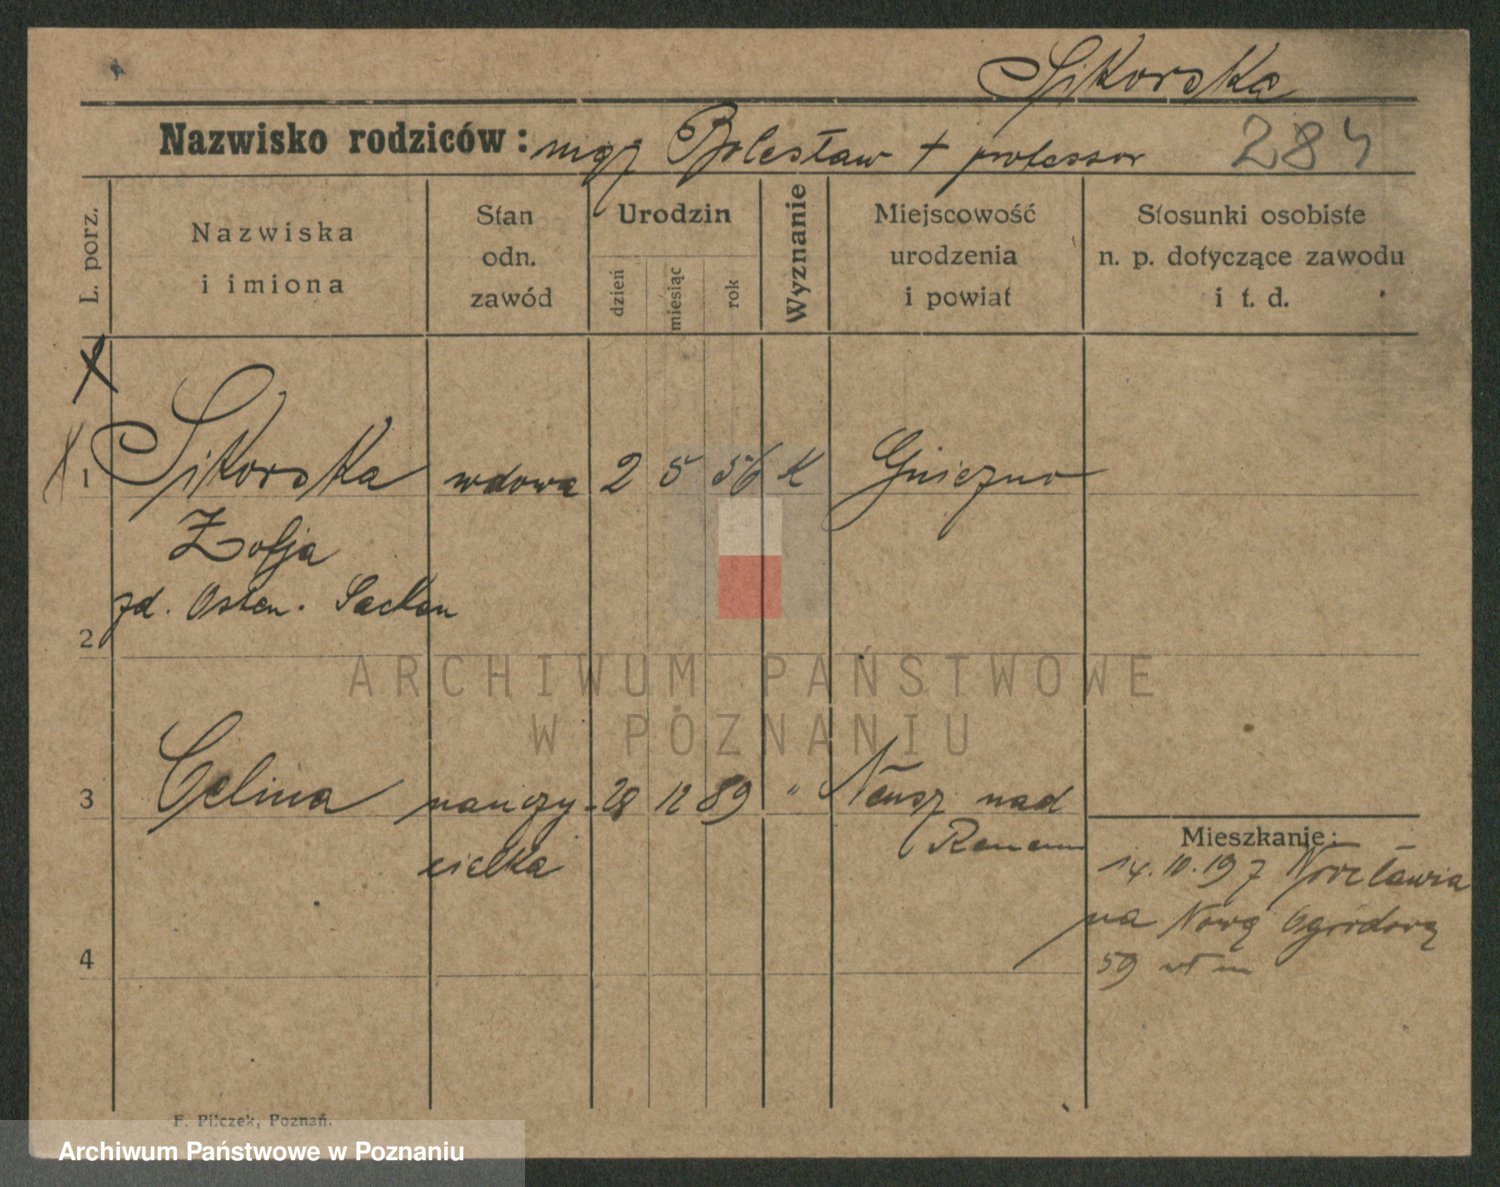 Sikorska
Nazwisko rodziców: mąż Bolesław + professor 284
L. porz.
Nazwiska
i imiona
Stan
odn.
zawód
Urodzin
dzień
miesiąc
rok
Wyznanie
Miejscowość
urodzenia
i powiat
Stosunki osobiste
n. p. dotyczące zawodu
i t. d.
X
X 1 Sikorska wdowa 2 5 56 K Gniezno
Zofja
zd. Osten. Sacken
2
ARCHIWUM PAŃSTWOWE
W POZNANIU
3 Celina nauczy- 28 12 89 " Neusz nad
cielka Renem
Mieszkanie:
14.10.19 z Wrocławia
na Nową Ogrodową
59
4
F. Pilczek, Poznań.
Archiwum Państwowe w Poznaniu